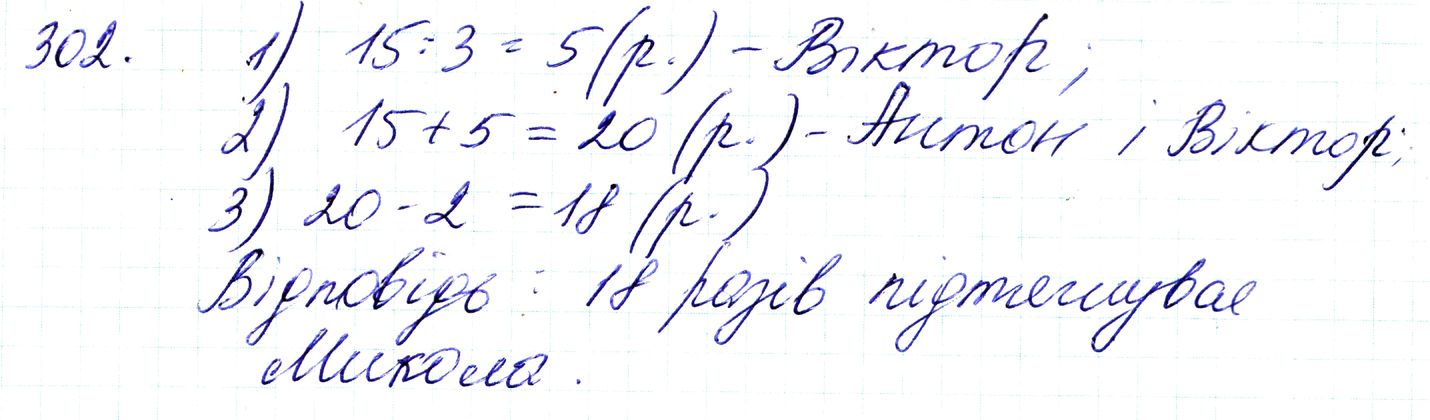 302. 1) 15:3=5(р.) - Віктор;
2) 15+5=20 (р.) - Антон і Віктор;
3) 20-2=18 (р.)
Відповідь: 18 разів підтягував
Микола.